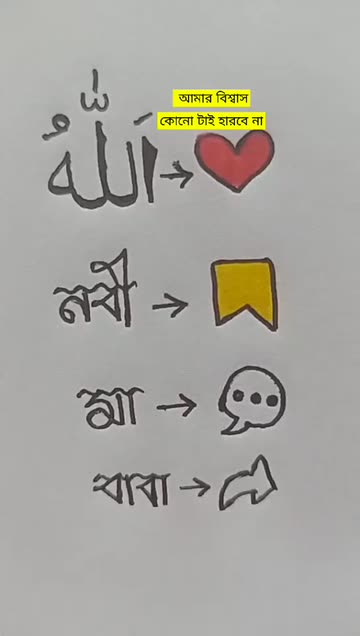 আমার বিশ্বাস
কোনো টাই হারবে না
اللّٰهُ →
নবী →
মা →
বাবা →